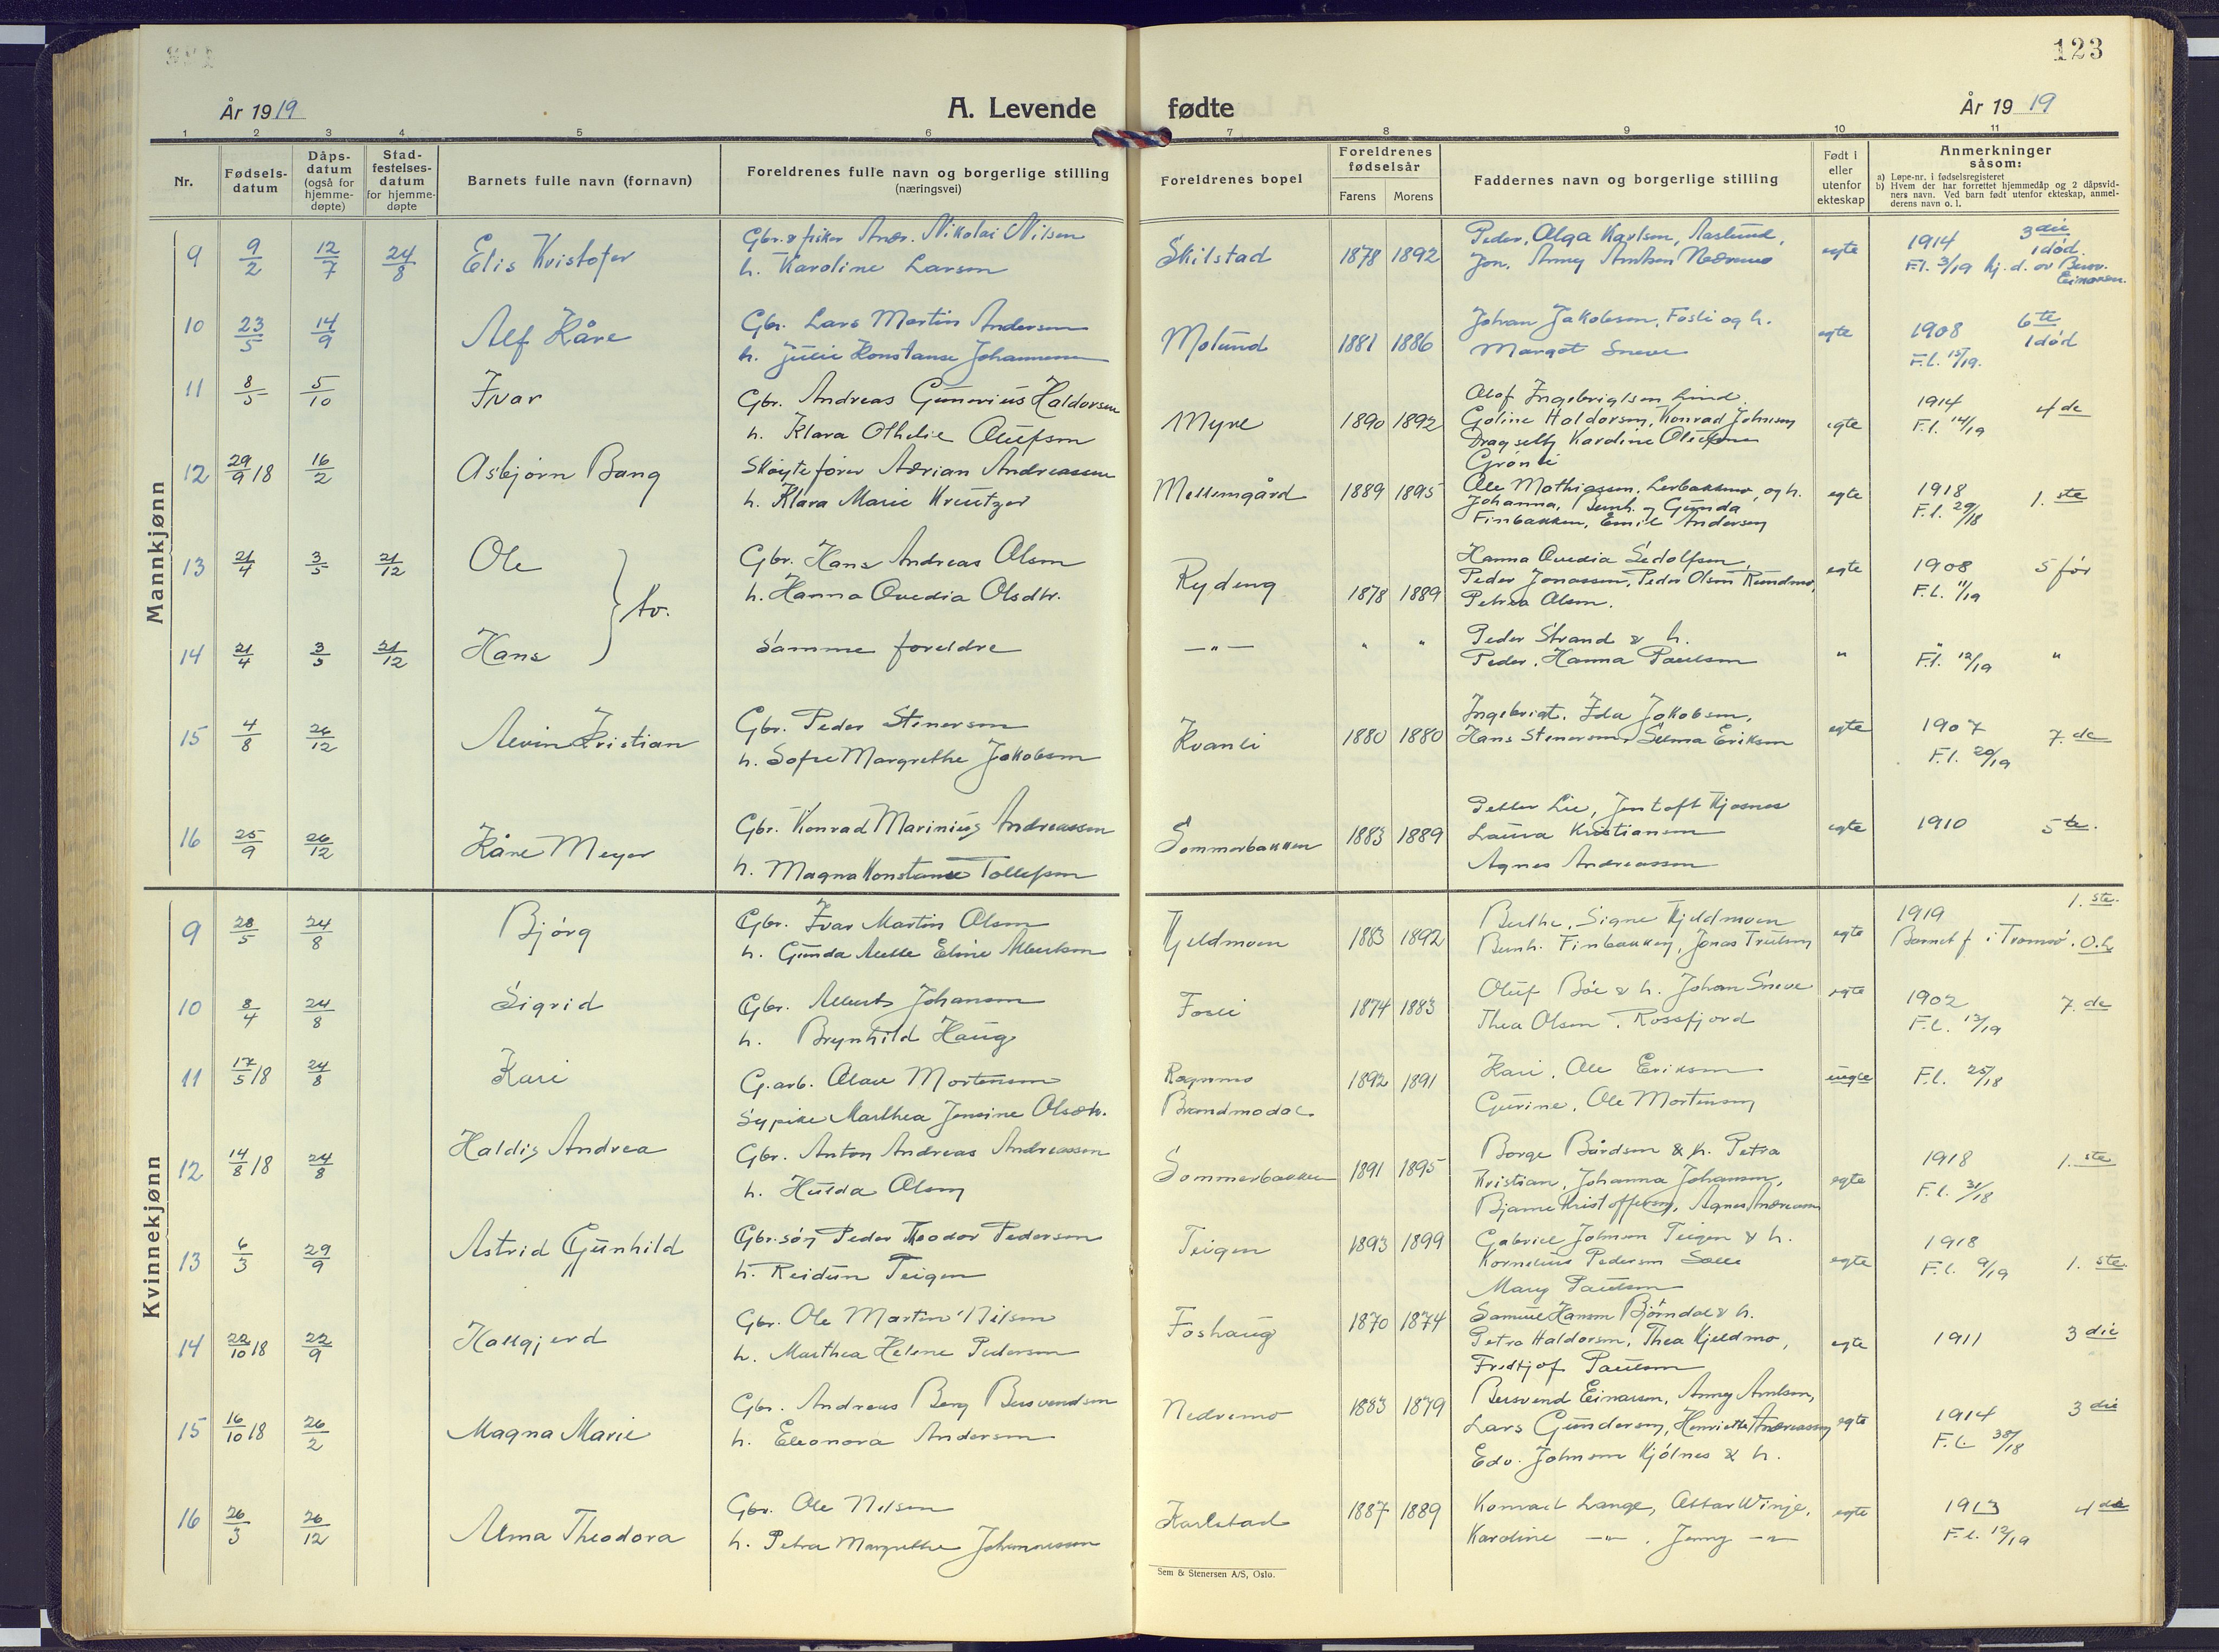 123
År 1919
A. Levende fødte
År 1919
1 2 3 4 5 6 7 8 9 10 11
Nr.
Fødsels-
datum
Dåps-
datum
(også for
hjemme-
døpte)
Stad-
festelses-
datum
for hjemme-
døpte
Barnets fulle navn (fornavn)
Foreldrenes fulle navn og borgerlige stilling
(næringsvei)
Foreldrenes bopel
Foreldrenes
fødselsår
Farens Morens
Faddernes navn og borgerlige stilling
Født i
eller
utenfor
ekteskap
Anmerkninger
såsom:
a) Løpe-nr. i fødselsregisteret
b) Hvem der har forrettet hjemmedåp og 2 dåpsvid-
ners navn. Ved barn født utenfor ekteskap, anmel-
derens navn o. l.
Mannkjønn
9 9/2 12/7 24/8 Elis Kristofer
Gbr. & fisker Andr. Nikolai Nilsen
h. Karoline Larsen
Skilstad 1878 1892
Peder, Olga Karlsen, Aaslund,
Jon, Anny Arntsen Nedremo
egte
1914 3die
1 død
F.l. 3/19 hj. d. av Bersv.
Einarsen.
10 23/5 14/9 Alf Kåre
Gbr. Lars Martin Andersen
h. Julie Konstanse Johannessen
Molund 1881 1886
Johan Jakobsen, Fosli og h.
Margot Sneve
egte
1908 6te
1 død
F.l. 15/19.
11 8/5 5/10 Ivar
Gbr. Andreas Gunerius Haldorsen
h. Klara Othelie Olufsen
Myre 1890 1892
Olof Ingebrigtsen Lind
Goline Haldorsen, Konrad Johnsen
Karoline
Grønli
egte
1914 4de
F.l. 14/19
12 29/9 18 16/2 Asbjørn Bang
Skøytefører Adrian Andreassen
h. Klara Marie Kreutzer
Mellemgård 1889 1895
Ole Mathiassen, og h.
Johanna, Bernh. og Gunda
Finbakken, Emil Andersen
egte
1918 1. ste
F.l. 29/18
13 21/4 3/5 21/12 Ole } tv.
Gbr. Hans Andreas Olsen
h. Hanna Ovedia Olsdtr.
Rydeng 1878 1889
Hanna Ovedia Sedolfsen,
Peder Jonassen, Peder Olsen Rundmo,
Petrea Olsen.
egte
1908 5 før
F.l. 11/19
14 21/4 3/5 21/12 Hans
Samme foreldre
— " — " "
Peder Strand & h.
Peder, Hanna Paulsen
"
"
F.l. 12/19 "
15 4/8 26/12 Alvin Kristian
Gbr. Peder Stenersen
h. Sofie Margrethe Jakobsen
Kvanli 1880 1880
Ingebrigt, Ida Jakobsen,
Hans Stenersen, Selma Eriksen
egte
1907 7. de
F.l. 20/19
16 25/9 26/12 Kåre Meyer
Gbr. Konrad Marinius Andreassen
h. Magna Konstanse Tollefsen
Sommerbakken 1883 1889
Petter Lie, Jentoft Kjosnes
Laura Kristiansen
Agnes Andreassen
egte
1910 5te.
Kvinnekjønn
9 28/5 24/8 Bjørg
Gbr. Ivar Martin Olsen
h. Gunda Eline Albertsen
Kjeldmoen 1883 1892
Berthe, Signe Kjeldmoen
Bernh. Finbakken, Jonas Trulsen
egte
1919 1. ste.
Barnet f. i Tromsø.
10 8/4 24/8 Sigrid
Gbr. Albert Johansen
h. Brynhild Haug
Fosli 1874 1883
Oluf Bøe & h. Johan Sneve
Thea Olsen, Rossfjord
egte
1902 7. de
F.l. 13/19
11 17/5 18 24/8 Kari
G.arb. Olav Mortensen
Sypike Marthea Jensine Olsdtr.
Rognmo
Brandmodal. 1892 1891
Kari, Ole Eriksen
Gurine, Ole Mortensen
uegte
F.l. 25/18
12 14/8 18 24/8 Haldis Andrea
Gbr. Anton Andreas Andreassen
h. Hulda Olsen
Sommerbakken 1891 1895
Borge Bårdsen & h. Petra
Kristian, Johanna Johansen,
Bjarne Kristoffersen, Agnes Andreassen
egte
1918 1. ste
F.l. 31/18
13 6/3 29/9 Astrid Gunhild
Gbr.søn Peder Theodor Pedersen
h. Reidun Teigen
Teigen 1893 1899
Gabriel Johnsen Teigen & h.
Kornelius Pedersen
Mary Paulsen
egte
1918
F.l. 9/19 1. ste.
14 22/10 18 22/9 Hallgjerd
Gbr. Ole Martin Nilsen
h. Marthea Helene Pedersen
Foshaug 1870 1874
Samuel Hansen Bjørndal & h.
Petra Haldorsen, Thea Kjeldmo,
Fredtjof Paulsen
egte
1911 3die
15 16/10 18 26/2 Magna Marie
Gbr. Andreas Berg Bersvendsen
h. Eleonora Andersen
Nedremo 1883 1879
Bersvend Einarsen, Anny Arntsen,
Lars Gundersen, Henriette Andreassen
Edv. Johnsen Kjølnes & h.
egte
1914 3die
F.l. 38/18
16 26/3 26/12 Alma Theodora
Gbr. Ole Nilsen
h. Petra Margrethe Johannessen
Karlstad 1887 1889
Konrad Lange, Ottar Winje,
Karoline — " — , Jenny — " —
egte
1913 4de
F.l. 12/19
Sem & Stenersen A/S, Oslo.